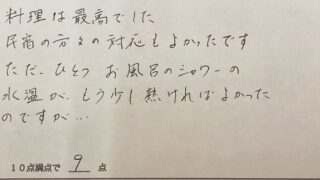 料理は最高でした
民宿の方々の対応もよかったです
ただ、ひとつ お風呂のシャワーの
水温が、もう少し熱ければよかった
のですが…
10点満点で 9 点